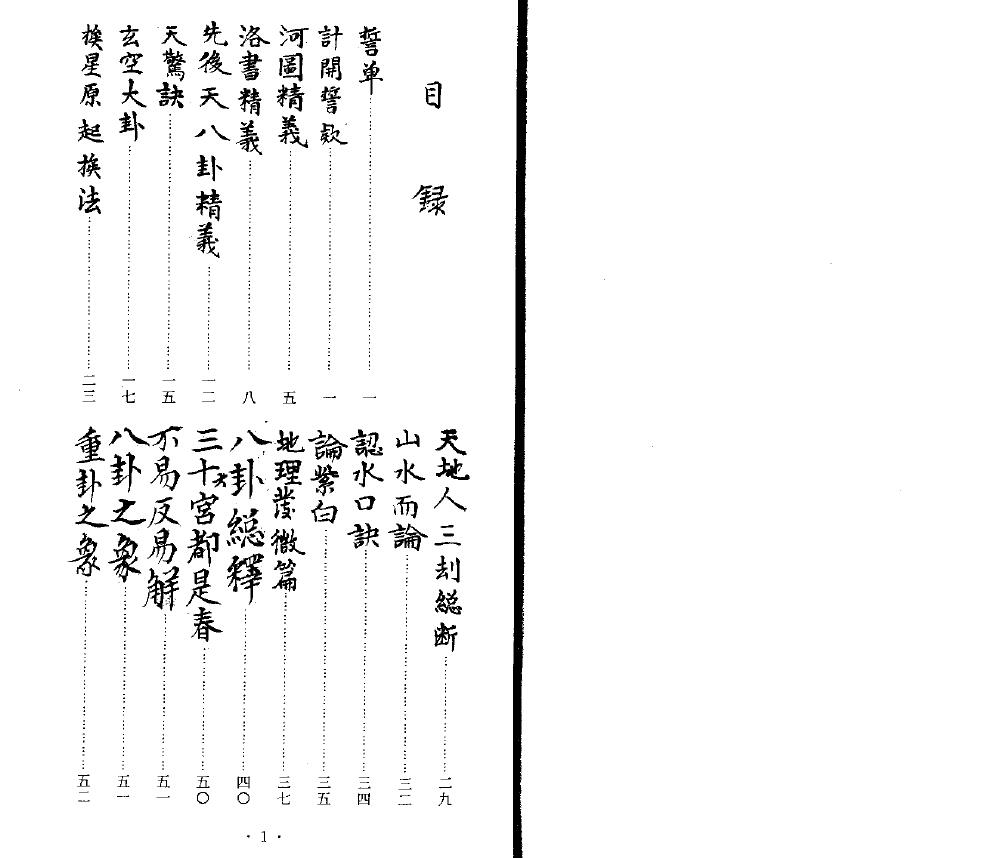 目録
誓单 一
計開誓款 一
河圖精義 五
洛書精義 八
先後天八卦精義 一二
天驚訣 一五
玄空大卦 一七
挨星原起挨法 二三
天地人三刦縂断 二九
山水而論 三二
認水口訣 三四
論紫白 三五
地理發微篇 三七
八卦縂釋 四〇
三十六宮都是春 五〇
不易反易解 五一
八卦之象 五一
重卦之象 五二
·1·